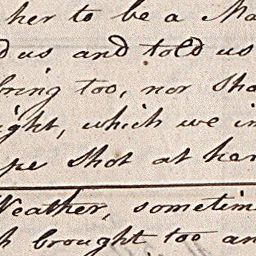 her to be a Ma
d us and told us
bring too, nor sha
ight, which we in
pe shot at her
Weather, sometim
h brought too an